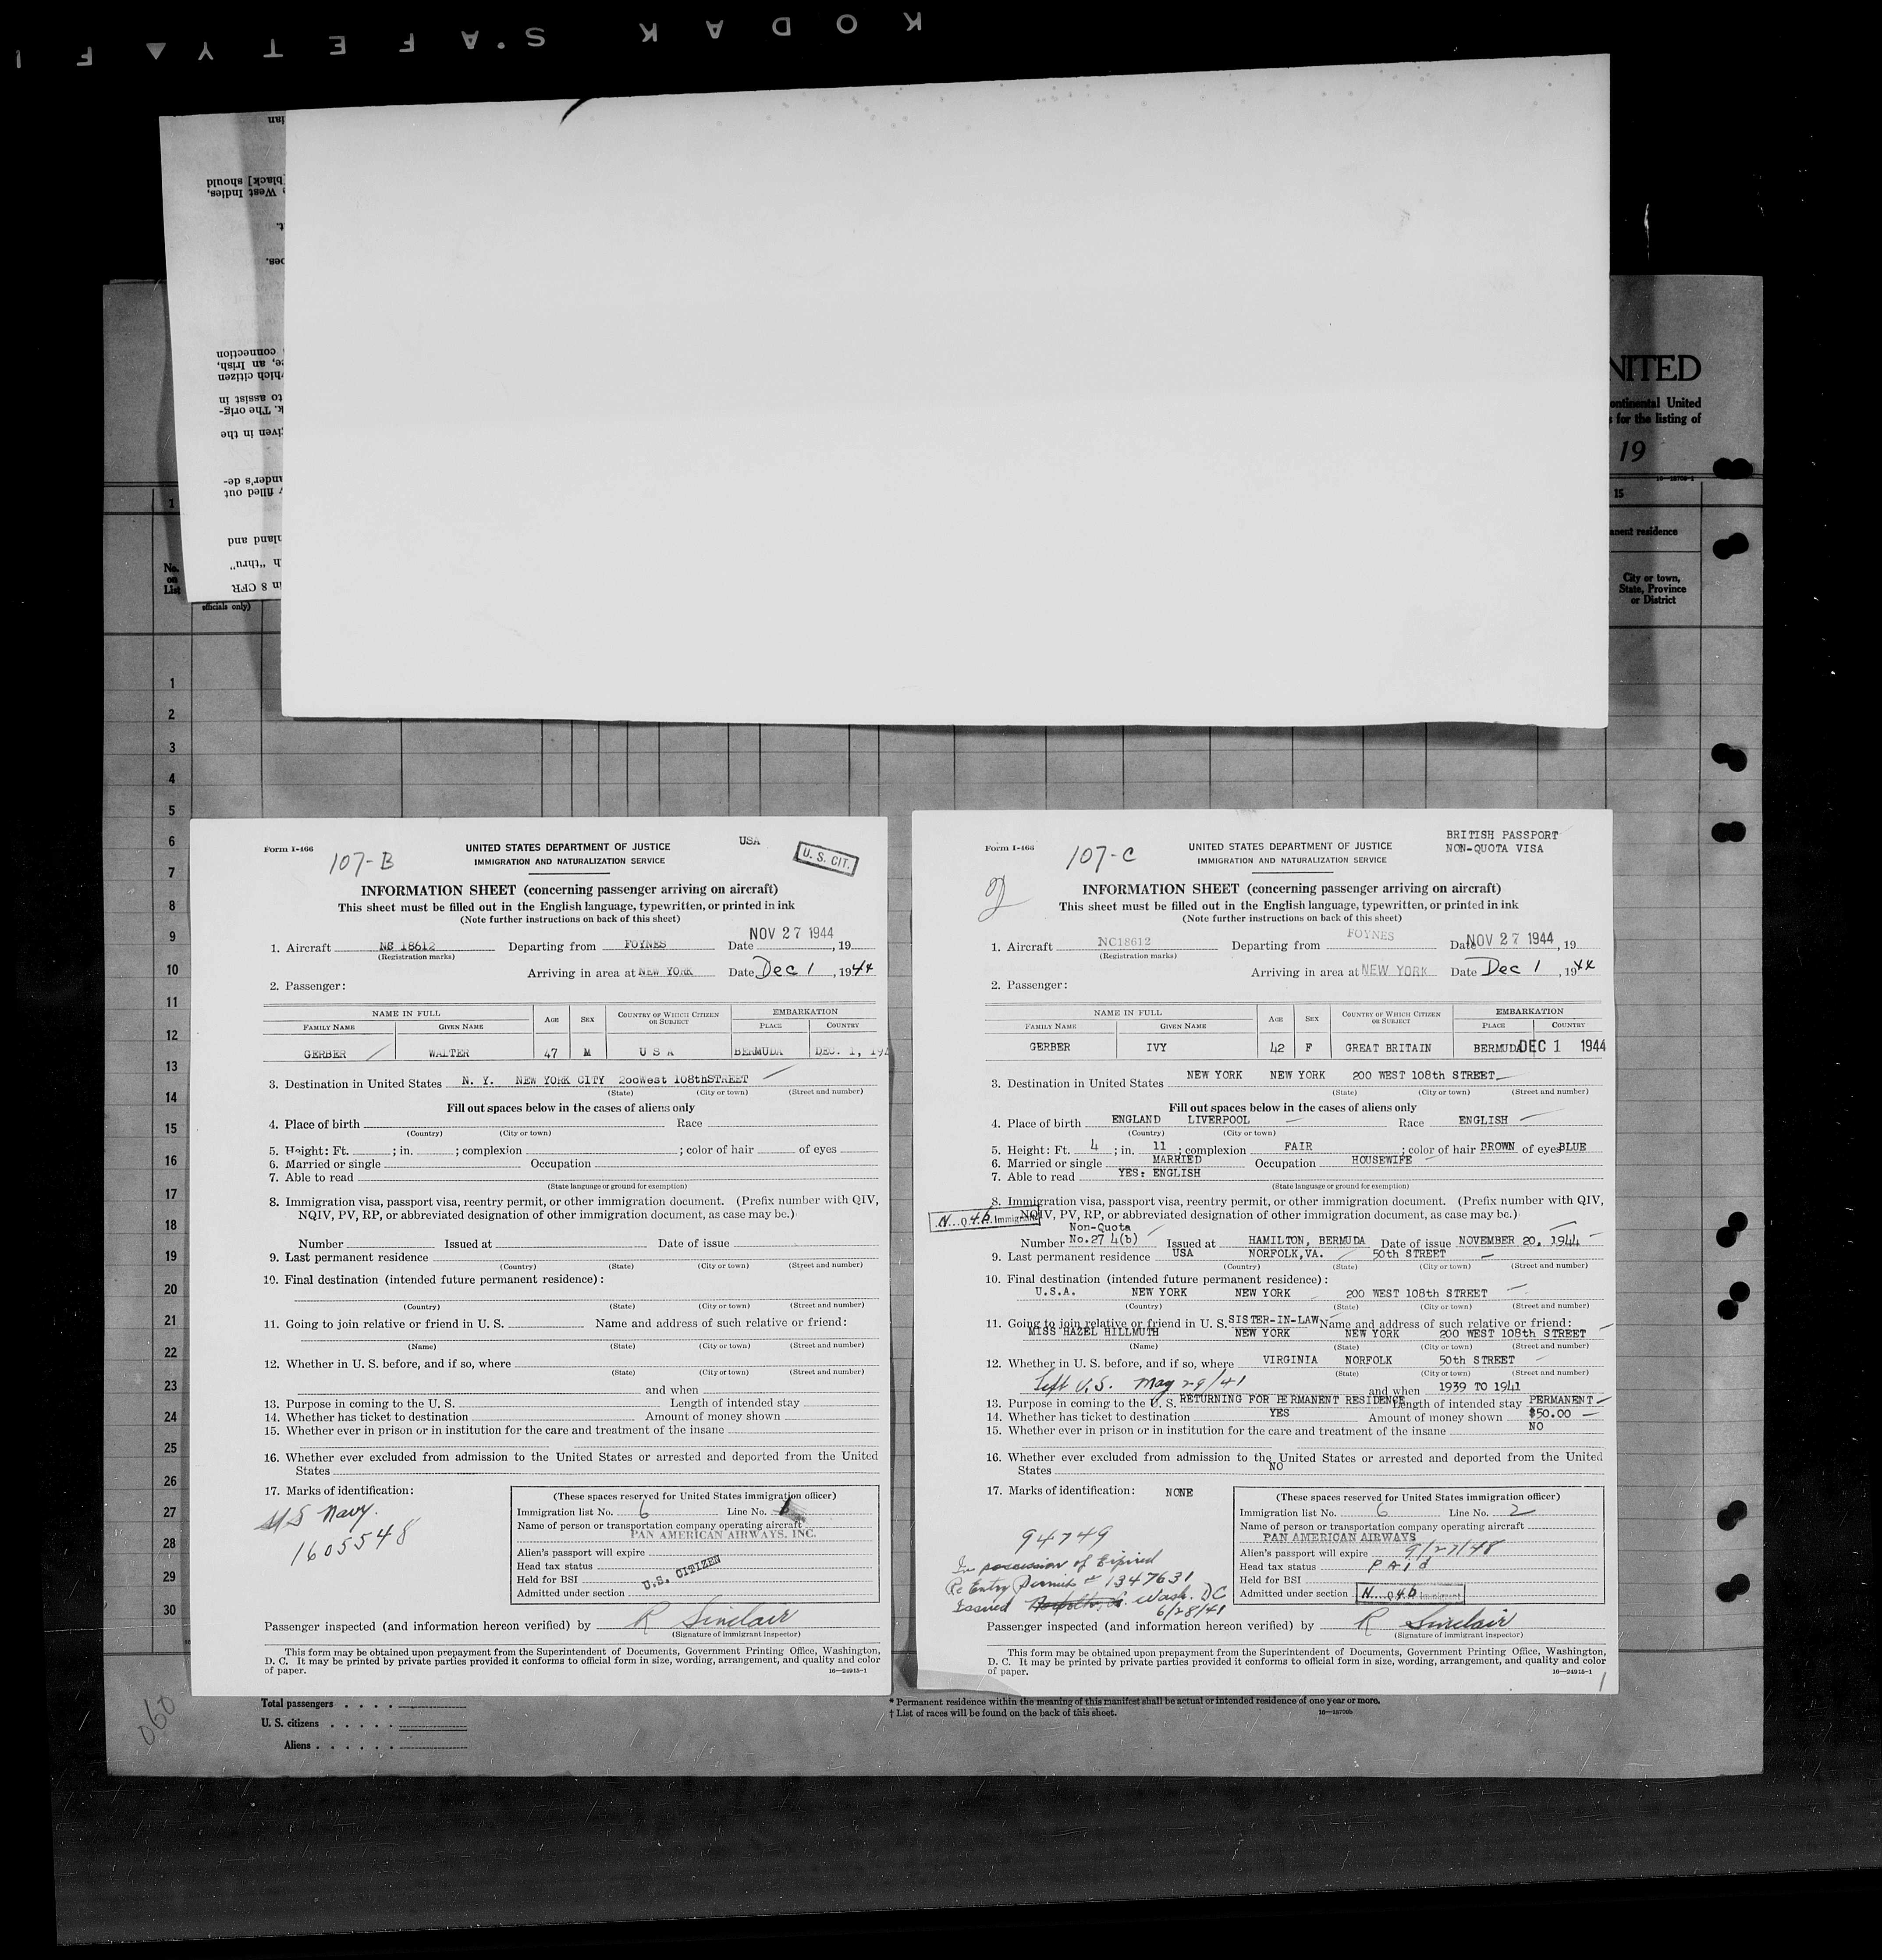 KODAK SAFETY F
NITED
ontinental United
s for the listing of
19
16—18709-1
1
15
anent residence
No.
on
List
City or town,
State, Province
or District
officials only)
1
2
3
4
5
6
7
8
9
10
11
12
13
14
15
16
17
18
19
20
21
22
23
24
25
26
27
28
29
30
Form I-466
107-B
UNITED STATES DEPARTMENT OF JUSTICE
IMMIGRATION AND NATURALIZATION SERVICE
USA
U. S. CIT.
INFORMATION SHEET (concerning passenger arriving on aircraft)
This sheet must be filled out in the English language, typewritten, or printed in ink
(Note further instructions on back of this sheet)
1. Aircraft NC 18612 Departing from FOYNES Date NOV 27 1944, 19
(Registration marks)
Arriving in area at NEW YORK Date Dec 1, 1944
2. Passenger:
NAME IN FULL AGE SEX COUNTRY OF WHICH CITIZEN OR SUBJECT EMBARKATION
FAMILY NAME GIVEN NAME PLACE COUNTRY
GERBER WALTER 47 M U S A BERMUDA DEC. 1, 194
3. Destination in United States N. Y. NEW YORK CITY 200West 108thSTREET
(State) (City or town) (Street and number)
Fill out spaces below in the cases of aliens only
4. Place of birth Race
(Country) (City or town)
5. Height: Ft. ; in. ; complexion ; color of hair of eyes
6. Married or single Occupation
7. Able to read
(State language or ground for exemption)
8. Immigration visa, passport visa, reentry permit, or other immigration document. (Prefix number with QIV,
NQIV, PV, RP, or abbreviated designation of other immigration document, as case may be.)
Number Issued at Date of issue
9. Last permanent residence
(Country) (State) (City or town) (Street and number)
10. Final destination (intended future permanent residence):
(Country) (State) (City or town) (Street and number)
11. Going to join relative or friend in U. S. Name and address of such relative or friend:
(Name) (State) (City or town) (Street and number)
12. Whether in U. S. before, and if so, where
(State) (City or town) (Street and number)
and when
13. Purpose in coming to the U. S. Length of intended stay
14. Whether has ticket to destination Amount of money shown
15. Whether ever in prison or in institution for the care and treatment of the insane
16. Whether ever excluded from admission to the United States or arrested and deported from the United
States
17. Marks of identification:
US Navy.
1605548
(These spaces reserved for United States immigration officer)
Immigration list No. 6 Line No. 1
Name of person or transportation company operating aircraft
PAN AMERICAN AIRWAYS, INC.
Alien's passport will expire
Head tax status
Held for BSI U.S. CITIZEN
Admitted under section
Passenger inspected (and information hereon verified) by R Sinclair
(Signature of immigrant inspector)
This form may be obtained upon prepayment from the Superintendent of Documents, Government Printing Office, Washington,
D. C. It may be printed by private parties provided it conforms to official form in size, wording, arrangement, and quality and color
of paper.
16—24915-1
Form I-466
107-C
UNITED STATES DEPARTMENT OF JUSTICE
IMMIGRATION AND NATURALIZATION SERVICE
BRITISH PASSPORT
NON-QUOTA VISA
INFORMATION SHEET (concerning passenger arriving on aircraft)
This sheet must be filled out in the English language, typewritten, or printed in ink
(Note further instructions on back of this sheet)
1. Aircraft NC18612 Departing from FOYNES Date NOV 27 1944, 19
(Registration marks)
Arriving in area at NEW YORK Date Dec 1, 1944
2. Passenger:
NAME IN FULL AGE SEX COUNTRY OF WHICH CITIZEN OR SUBJECT EMBARKATION
FAMILY NAME GIVEN NAME PLACE COUNTRY
GERBER IVY 42 F GREAT BRITAIN BERMUDA DEC 1 1944
3. Destination in United States NEW YORK NEW YORK 200 WEST 108th STREET
(State) (City or town) (Street and number)
Fill out spaces below in the cases of aliens only
4. Place of birth ENGLAND LIVERPOOL Race ENGLISH
(Country) (City or town)
5. Height: Ft. 4 ; in. 11 ; complexion FAIR ; color of hair BROWN of eyes BLUE
6. Married or single MARRIED Occupation HOUSEWIFE
7. Able to read YES: ENGLISH
(State language or ground for exemption)
8. Immigration visa, passport visa, reentry permit, or other immigration document. (Prefix number with QIV,
NQIV, PV, RP, or abbreviated designation of other immigration document, as case may be.)
N. Q. 4b Immigrant
Non-Quota
Number No.27 4(b) Issued at HAMILTON, BERMUDA Date of issue NOVEMBER 20, 1944
9. Last permanent residence USA NORFOLK,VA. 50th STREET
(Country) (State) (City or town) (Street and number)
10. Final destination (intended future permanent residence):
U.S.A. NEW YORK NEW YORK 200 WEST 108th STREET
(Country) (State) (City or town) (Street and number)
11. Going to join relative or friend in U. S. SISTER-IN-LAW Name and address of such relative or friend:
MISS HAZEL HILLMUTH NEW YORK NEW YORK 200 WEST 108th STREET
(Name) (State) (City or town) (Street and number)
12. Whether in U. S. before, and if so, where VIRGINIA NORFOLK 50th STREET
(State) (City or town) (Street and number)
Left U.S. May 29/41 and when 1939 TO 1941
13. Purpose in coming to the U. S. RETURNING FOR PERMANENT RESIDENCE Length of intended stay PERMANENT
14. Whether has ticket to destination YES Amount of money shown $50.00
15. Whether ever in prison or in institution for the care and treatment of the insane NO
16. Whether ever excluded from admission to the United States or arrested and deported from the United
States NO
17. Marks of identification: NONE
94749
In possession of Expired
Re Entry Permit # 1347631
Issued Wash. DC
6/28/41
(These spaces reserved for United States immigration officer)
Immigration list No. 6 Line No. 2
Name of person or transportation company operating aircraft
PAN AMERICAN AIRWAYS
Alien's passport will expire 9/27/48
Head tax status Paid
Held for BSI
Admitted under section N. Q. 4b Immigrant
Passenger inspected (and information hereon verified) by R Sinclair
(Signature of immigrant inspector)
This form may be obtained upon prepayment from the Superintendent of Documents, Government Printing Office, Washington,
D. C. It may be printed by private parties provided it conforms to official form in size, wording, arrangement, and quality and color
of paper.
16—24915-1
1
060
Total passengers
U. S. citizens
Aliens
* Permanent residence within the meaning of this manifest shall be actual or intended residence of one year or more.
† List of races will be found on the back of this sheet.
16—18709b